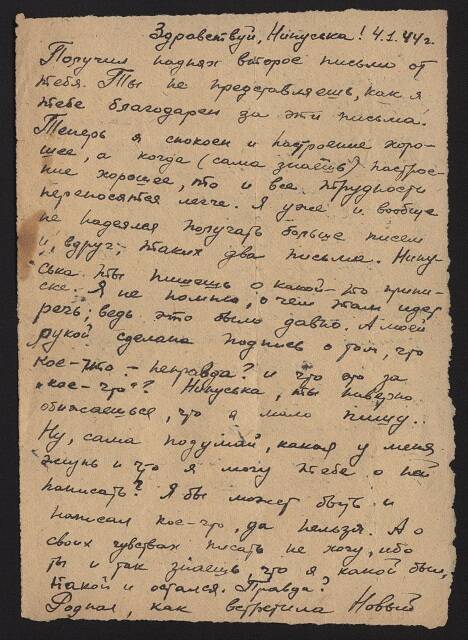 Здравствуй, Нинуська! 4.1.44г.
Получил надняx второе письмо от
тебя. Ты не представляешь, как я
тебе благодарен за эти письма.
Теперь я спокоен и настроение хоро-
шее, а когда (сама знаешь) настрое-
ние хорошее, то и все трудности
переносятся легче. Я уже и вообще
не надеялся получать больше писем
и, вдруг, таких два письма. Нину-
ська ты пишешь о какой-то припи-
ске. Я не помню, о чем там идет
речь, ведь это было давно. А моей
рукой сделана подпись о том, что
кое-что - неправда? и что это за
"кое-что"? Нинуська, ты наверно
обижаешься, что я мало пишу.
Ну, сама подумай, какая у меня
жизнь и что я могу тебе о ней
написать? Я бы может быть и
написал кое-что, да нельзя. А о
своих чувствах писать не хочу, ибо
ты и так знаешь, что я какой был,
такой и остался. Правда?
Родная, как встретила Новый